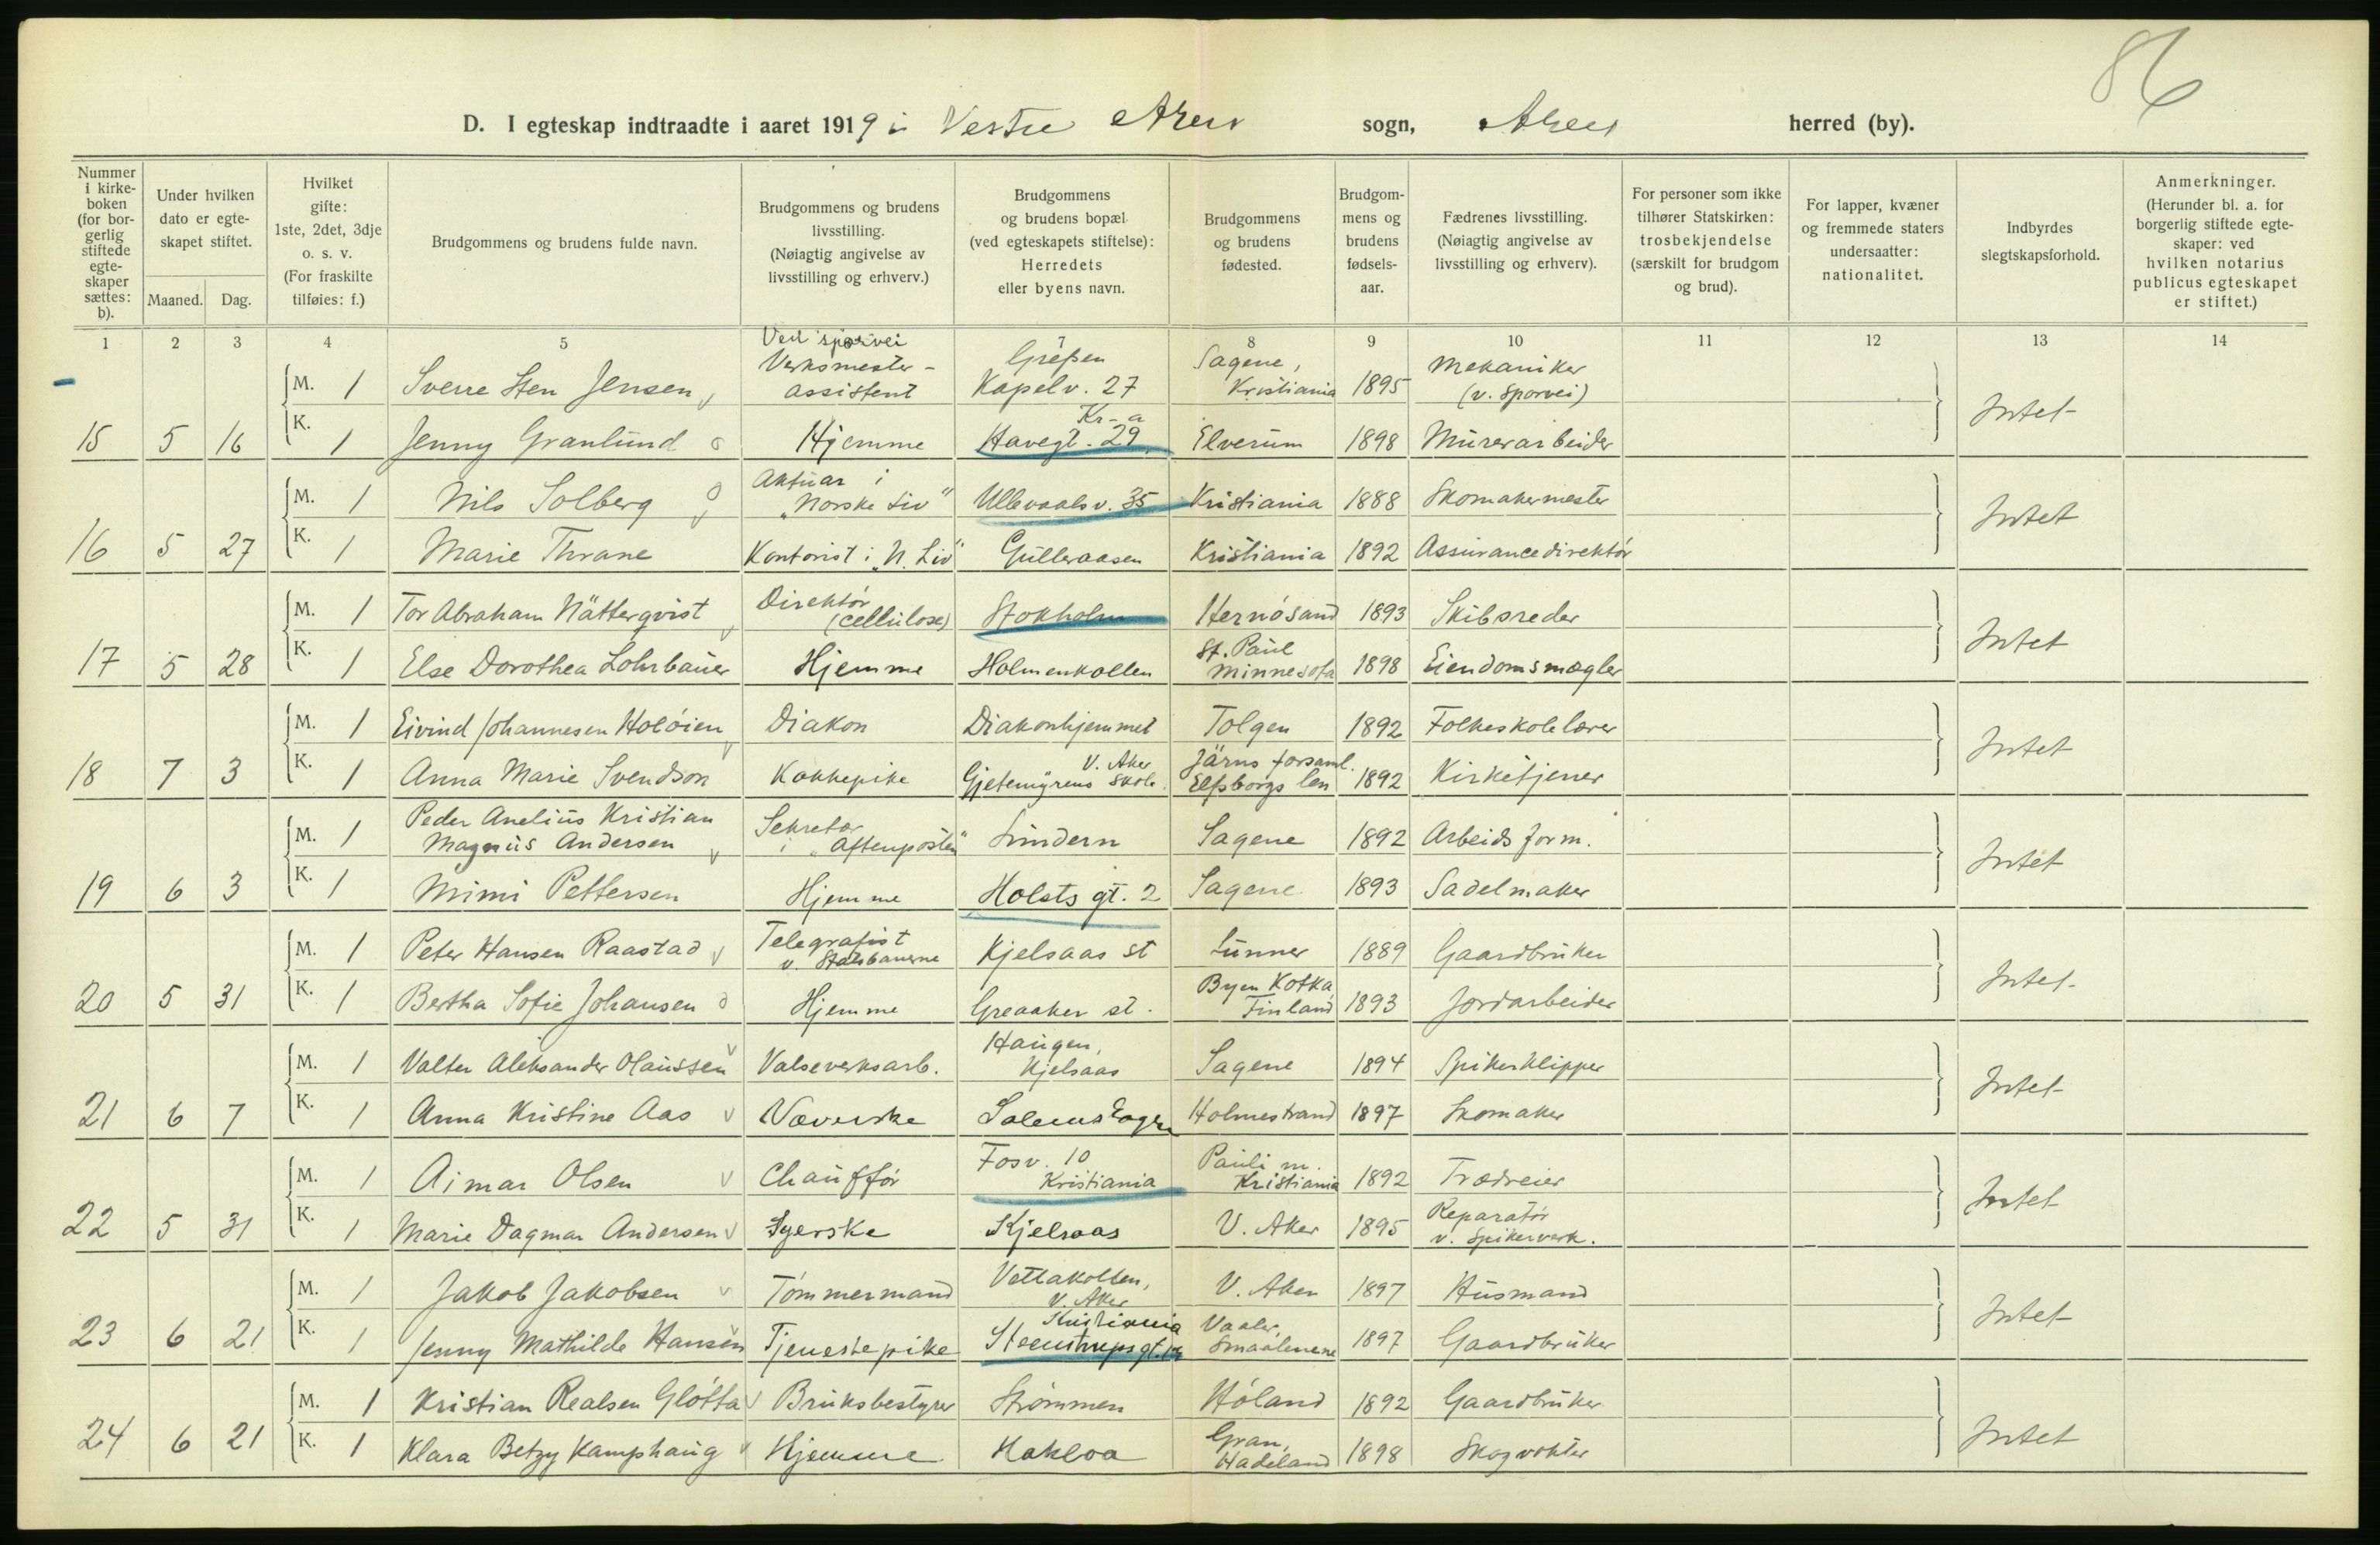 86
D. I egteskap indtraadte i aaret 1919 i Vestre Aker sogn, Aker herred (by).
Nummer i kirkeboken (for borgerlig stiftede egteskaper sættes: b).
Under hvilken dato er egteskapet stiftet.
Maaned. Dag.
Hvilket gifte: 1ste, 2det, 3dje o. s. v. (For fraskilte tilføies: f.)
Brudgommens og brudens fulde navn.
Brudgommens og brudens livsstilling. (Nøiagtig angivelse av livsstilling og erhverv.)
Brudgommens og brudens bopæl (ved egteskapets stiftelse): Herredets eller byens navn.
Brudgommens og brudens fødested.
Brudgommens og brudens fødselsaar.
Fædrenes livsstilling. (Nøiagtig angivelse av livsstilling og erhverv).
For personer som ikke tilhører Statskirken: trosbekjendelse (særskilt for brudgom og brud).
For lapper, kvæner og fremmede staters undersaatter: nationalitet.
Indbyrdes slegtskapsforhold.
Anmerkninger. (Herunder bl. a. for borgerlig stiftede egteskaper: ved hvilken notarius publicus egteskapet er stiftet.)
1 2 3 4 5 7 8 9 10 11 12 13 14
M. 1 Sverre Sten Jensen Ved sporvei Verksmester-assistent Grefsen Kapelv. 27 Sagene, Kristiania 1895 Mekaniker (v. Sporvei)
15 5 16 K. 1 Jenny Granlund Hjemme Kr-a Havegt. 29 Elverum 1898 Murerarbeider Intet
M. 1 Nils Solberg Aktuar i "Norske Liv" Ullevaalsv. 35 Kristiania 1888 Skomakermester
16 5 27 K. 1 Marie Thrane Kontorist i "N. Liv" Gulleraasen Kristiania 1892 Assurancedirektør Intet
M. 1 Tor Abraham Nätterqvist Direktør (cellulose) Stokholm Hernösand 1893 Skibsreder
17 5 28 K. 1 Else Dorothea Lohrbauer Hjemme Holmenkollen St. Paul Minnesota 1898 Eiendomsmægler Intet
M. 1 Eivind Johannesen Holøien Diakon Diakonhjemmet Tolgen 1892 Folkeskolelærer
18 7 3 K. 1 Anna Marie Svendson Kokkepike V. Aker Gjetemyrens Skole. Järns forsaml. Elfsborgs len 1892 Kirketjener Intet
M. 1 Peder Anelius Kristian Magnus Andersen Sekretær i "Aftenposten" Lindern Sagene 1892 Arbeidsform.
19 6 3 K. 1 Mimi Pettersen Hjemme Holsts gt. 2 Sagene 1893 Sadelmaker Intet
M. 1 Peter Hansen Raastad Telegrafist v. Statsbanerne Kjelsaas st Lunner 1889 Gaardbruker
20 5 31 K. 1 Bertha Sofie Johansen Hjemme Greaaker st. Byen Kotka Finland 1893 Jordarbeider Intet
M. 1 Valter Aleksander Olaussen Valseverksarb. Haugen, Kjelsaas Sagene 1894 Spikerklipper
21 6 7 K. 1 Anna Kristine Aas Væverske Holmestrand 1897 Skomaker Intet
M. 1 Aimar Olsen Chauffør Fosv. 10 Kristiania Pauli m. Kristiania 1892 Trædreier
22 5 31 K. 1 Marie Dagmar Andersen Syerske Kjelsaas V. Aker 1895 Reparatør v. Spikerverk. Intet
M. 1 Jakob Jakobsen Tømmermand Vettakollen, V. Aker V. Aker 1897 Husmand
23 6 21 K. 1 Jenny Mathilde Hansen Tjenestepike Kristiania Steenstrupsgt. Vaaler, Smaalenene 1897 Gaardbruker Intet
M. 1 Kristian Realsen Gløtta Bruksbestyrer Strømmen Høland 1892 Gaardbruker
24 6 21 K. 1 Klara Betzy Kamphaug Hjemme Hakloa Gran, Hadeland 1898 Skogvokter Intet